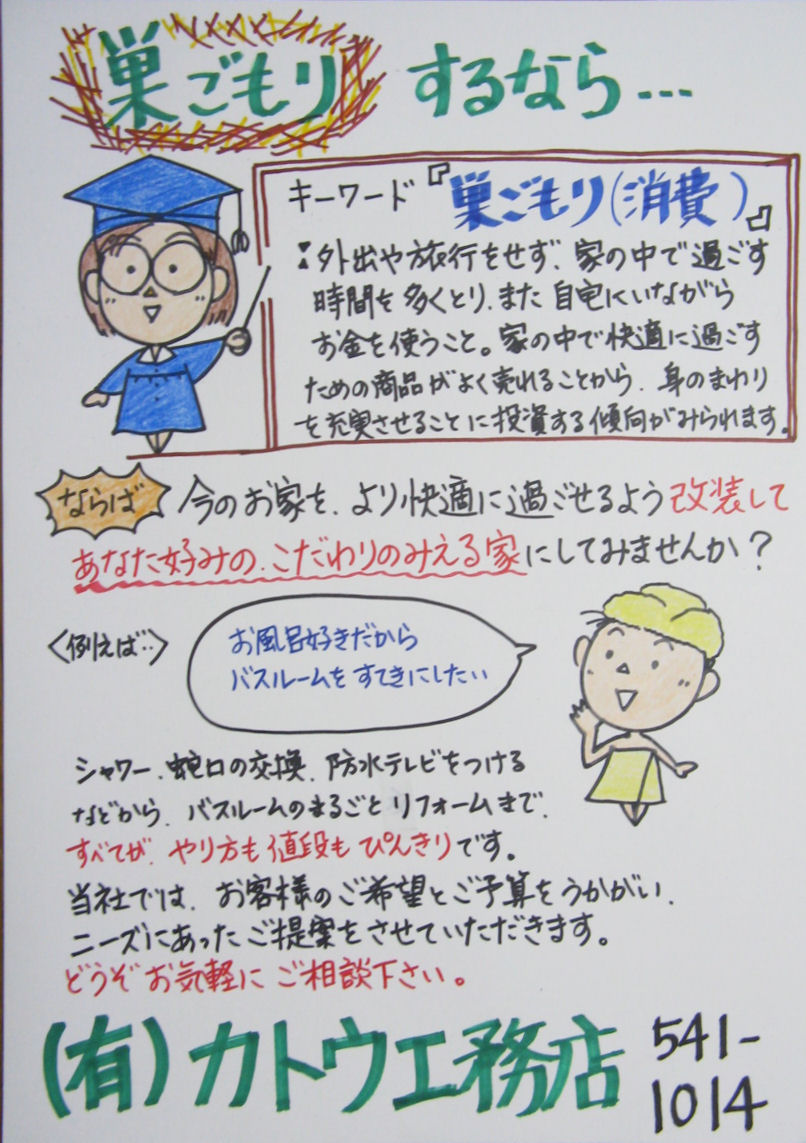 巣ごもり するなら…
キーワード『巣ごもり(消費)』
：外出や旅行をせず、家の中で過ごす
時間を多くとり、また自宅にいながら
お金を使うこと。家の中で快適に過ごす
ための商品がよく売れることから、身のまわり
を充実させることに投資する傾向がみられます。
ならば 今のお家を、より快適に過ごせるよう改装して
あなた好みの、こだわりのみえる家にしてみませんか？
〈例えば‥〉
お風呂好きだから
バスルームをすてきにしたい
シャワー、蛇口の交換、防水テレビをつける
などから、バスルームのまるごとリフォームまで、
すべてが、やり方も値段もぴんきりです。
当社では、お客様のご希望とご予算をうかがい、
ニーズにあったご提案をさせていただきます。
どうぞお気軽にご相談下さい。
(有)カトウ工務店 541-
1014